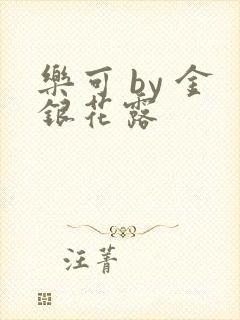 樂可 by 金
銀花露
汪菁